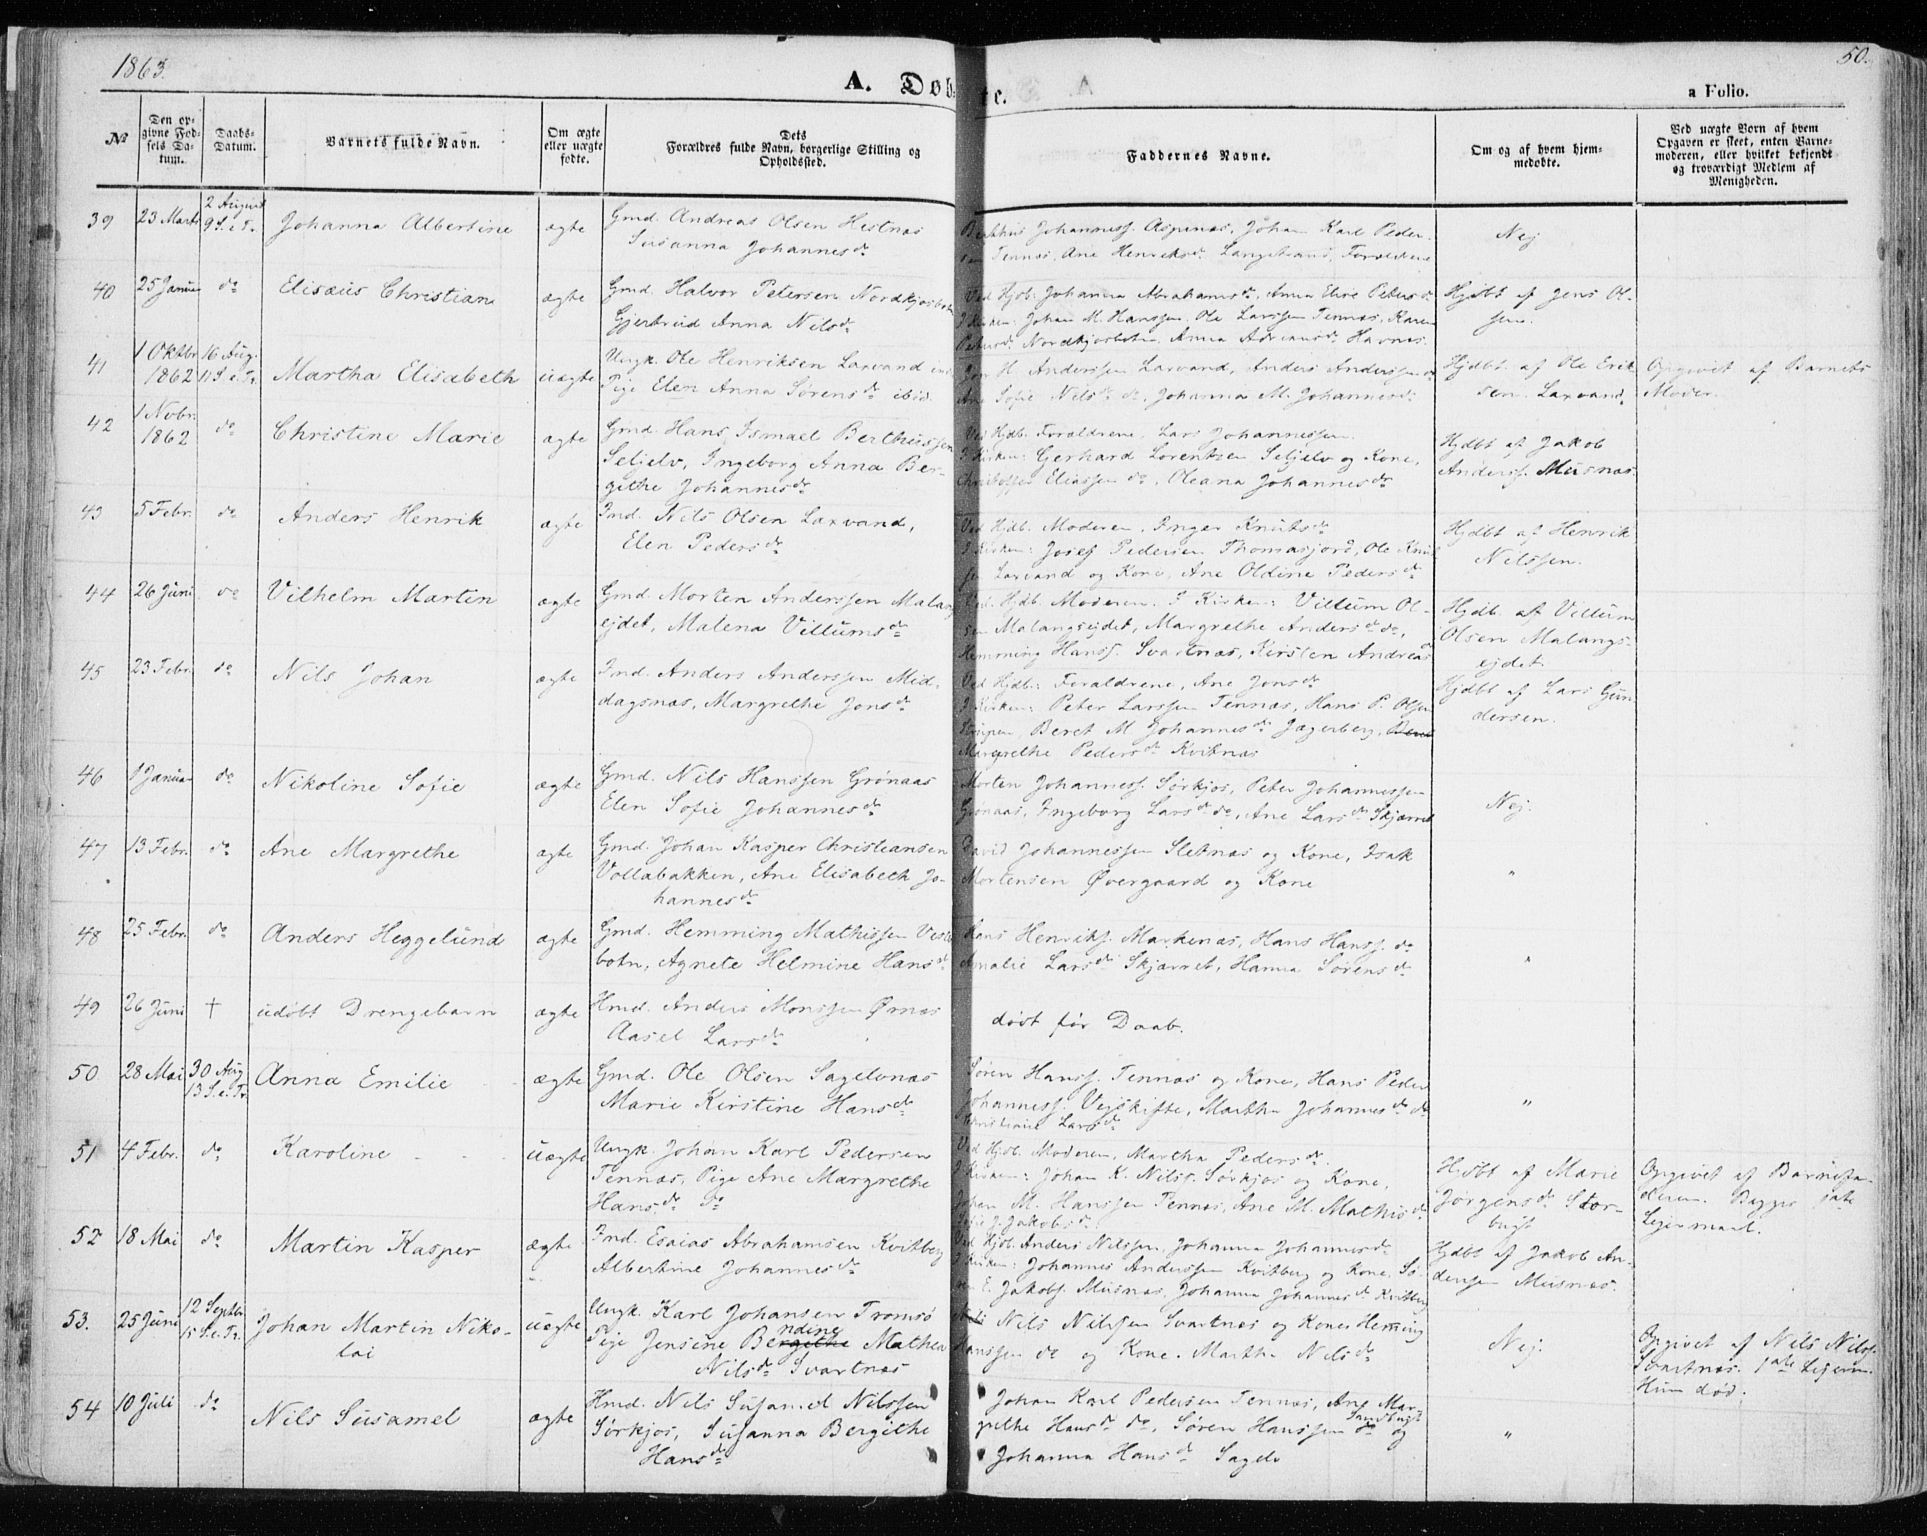 1863.
50.
A. Døbte.
a Folio.
№
Den opgivne Fødsels Datum.
Daabs-Datum.
Barnets fulde Navn.
Om ægte eller uægte fødte.
Dets Forældres fulde Navn, borgerlige Stilling og Opholdssted.
Faddernes Navne.
Om og af hvem hjemmedøbte.
Ved uægte Børn af hvem Opgaven er skeet, enten Barnemoderen, eller hvilket bekjendt og troværdigt Medlem af Menigheden.
39 23 Marts 2 August 9 S. e. Tr. Johanna Albertine ægte
Gmd. Andreas Olsen Hestnæs
Susanna Johannesdr
Berthus Johanness. Aspenæs, Johan Karl Peder-
sen Tennæs, Ane Henriksdr Langstrand, Forældrene
Nej
40 25 Januar do Elisæus Christian ægte
Gmd. Halvor Petersen Nordkjosbotn
Gjertrud Anna Nilsdr
Ved Hjdb. Johanna Abrahamsdr, Anna Elise Petersdr
I Kirken: Johan M. Hanssen, Ole Larssen Tennæs, Karen
Petersdr Nordkjosbotn, Anna Adriansdr Havnæs
Hjdbt af Jens Ol-
sen.
41 1 Oktbr 1862 16 Aug. 11 S. e. Tr. Martha Elisabeth uægte
Ungk. Ole Henriksen Laxvand
Pige Elen Anna Sørensdr ibid.
Jon H. Anderssen Laxvand, Anders Anderssen do
Ane Sofie Nilsdr do, Johanna M. Johannesdr
Hjdbt. af Ole Erik-
sen Laxvand
Opgivet af Barnets
Moder.
42 1 Novbr. 1862 do Christine Marie ægte
Gmd. Hans Ismael Berthussen
Seljelv, Ingeborg Anna Ber-
githe Johannesdr
Ved Hjdb. Forældrene, Lars Johannessen
I Kirken: Gerhard Lorentzen Seljelv og Kone,
Christoffer Eliassen do, Oleana Johannesdr
Hjdbt af Jakob
Anderss. Musnæs
43 5 Febr. do Anders Henrik ægte
Ind. Nils Olsen Laxvand,
Elen Pedersdr
Ved Hjdb. Moderen, Inger Knutsdr
I Kirken: Josef Pedersen Thomasjord, Ole Knut-
sen Laxvand og Kone, Ane Oldine Pedersdr
Hjdbt af Henrik
Nilssen.
44 26 Juni do Vilhelm Martin ægte
Gmd. Morten Anderssen Malangs-
ejdet, Malena Villumsdr
Ved. Hjdb. Moderen. I Kirken: Villum Ol-
sen Malangsejdet, Margrethe Andersdr do,
Hemming Hanss. Svartnæs, Kirsten Andreasdr
Hjdb. af Villum
Olsen Malangs-
ejdet
45 23 Febr. do Nils Johan ægte
Ind. Anders Anderssen Mid-
dagsnæs, Margrethe Jonsdr
Ved Hjdb: Forældrene, Ane Jonsdr
I Kirken: Peter Larssen Tennæs, Hans P. Olsen
Beret M Johannesdr Jægerberg,
Margrethe Pedersdr Kvitnæs
Hjdbt af Lars Gun-
dersen.
46 1 Januar do Nikoline Sofie ægte
Gmd. Nils Hanssen Grønaas
Elen Sofie Johannesdr
Morten Johanness. Sørkjos, Peter Johannessen
Grønaas, Ingeborg Larsdr do, Ane Larsdr Skjærret
Nej.
47 13 Febr. do Ane Margrethe ægte
Gmd. Johan Kasper Christiansen
Vollabakken, Ane Elisabeth Jo-
hannesdr
David Johannessen Sletnæs og Kone, Isak
Mortensen Øvergaard og Kone
"
48 25 Febr. do Anders Heggelund ægte
Gmd. Hemming Mathissen Vest-
botn, Agnete Helmine Hansdr
Hans Henriks. Markenæs, Hans Hanss. do
Amalie Larsdr Skjærret, Hanna Sørensdr
"
49 26 Juni † udøbt Drengebarn ægte
Hmd. Anders Monssen Ørnæs
Aasel Larsdr
død før Daab.
50 28 Mai 30 Aug. 13 S. e. Tr. Anna Emilie ægte
Gmd. Ole Olsen Sagelvnæs
Marie Kirstine Hansdr
Søren Hanss. Tennæs og Kone, Hans Peder
Johanness. Vejskifte, Martha Johannesdr do
Christiane Larsdr
"
51 4 Febr. do Karoline uægte
Ungk. Johan Karl Pedersen
Tennæs, Pige Ane Margrethe
Hansdr do
Ved Hjdb. Moderen, Martha Pedersdr.
I Kirken: Johan K. Nilss. Sørkjos og Kone,
Johan M. Hanssen Tennæs, Ane M. Mathisdr
Sofie J. Jakobsdr
Hjdbt af Marie
Jørgensdr Stor-
bugt
Opgivet af Barnefa-
deren. Begges 1ste
Lejermaal.
52 18 Mai do Martin Kasper ægte
Ind. Esaias Abrahamsen Kvitberg
Albertine Johannesdr
Ved Hjdb. Anders Nilssen, Johanna Johannesdr
I Kirken: Johannes Anderssen Kvitberg og Kone, Sø-
ren E. Jakobs. Musnæs, Johanna Johannesdr Kvitberg
Hjdbt af Jakob An-
dersen Musnæs.
53. 25 Juni 12 Septbr 15 S. e. Tr. Johan Martin Niko-
lai uægte
Ungk. Karl Johansen Tromsø
Pige Jensine Bergithe ndine Mathea
Nilsdr Svartnæs
Nils Nilssen Svartnæs og Kone, Heming
Hanssen do og Kone. Martha Nilsdr
Nej.
Opgivet af Nils Nilss.
Svartnæs. 1ste Lejerm.
Hun død.
54 10 Juli do Nils Susamel ægte
Hmd. Nils Susamel Nilssen
Sørkjos, Susanna Bergithe
Hansdr
Johan Karl Pedersen Tennæs, Ane Mar-
grethe Hansdr do, Søren Hanssen Sandbugt do og
Johanna Hansdr Sagelv
"